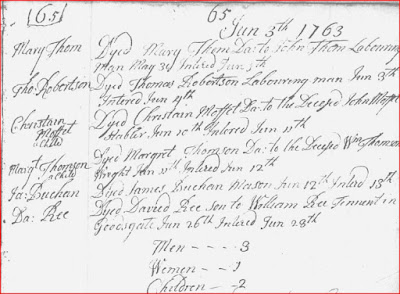 (65)
65
Jun 5th 1763
Mary Thom Dyed Mary Thom Da: to John Thom Labouring
man May 31 Intered Jun 5th
Tho: Robertson Dyed Thomas Robertson Labouring man Jun 3th
Intered Jun 4th
Christain Moffet a child Dyed Christain Moffet Da: to the Decesed John Moffet
Stabler Jun 10th Intered Jun 11th
Margt Thomson a child Dyed Margret Thomson Da: to the Decesed Wm Thomson
Wright Jun 11th Intered Jun 12th
Ja: Buchan Dyed James Buchan Mason Jun 12th Interd 13th
Da: Ree Dyed David Ree son to William Ree Tennent in
Goosgate Jun 26th Intered Jun 28th
Men - - - - 3
Women - - - 1
Children - - 2